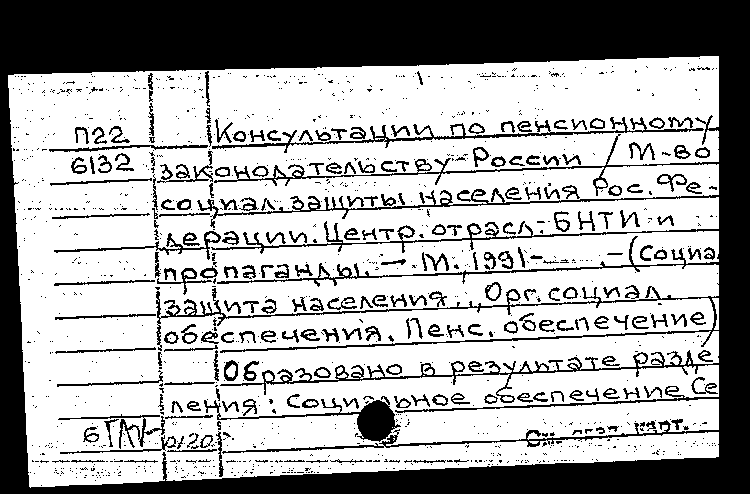 П22 Консультации по пенсионному
6132 законодательству России / М-во
социал. защиты населения Рос. Фе-
дерации. Центр. отрасл. БНТИ и
пропаганды. — М., 1991- . - (Социа
защита населения. Орг. социал.
обеспечения. Пенс. обеспечение)
Образовано в результате разде
ления: Социальное обеспечение Се
б